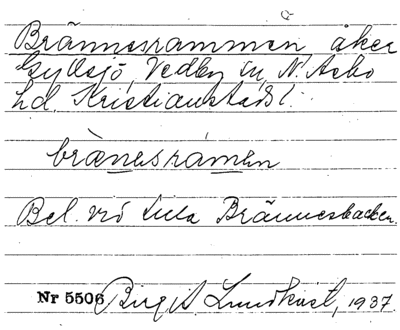 Brännesrammen åker
Gyllsjö, Vedby sn, N. Åsbo
hd. Kristianstads l.
bränesrämen
Bel. vid lilla Brännesbacken.
Nr 5506 Birgit Lundkvist, 1937.